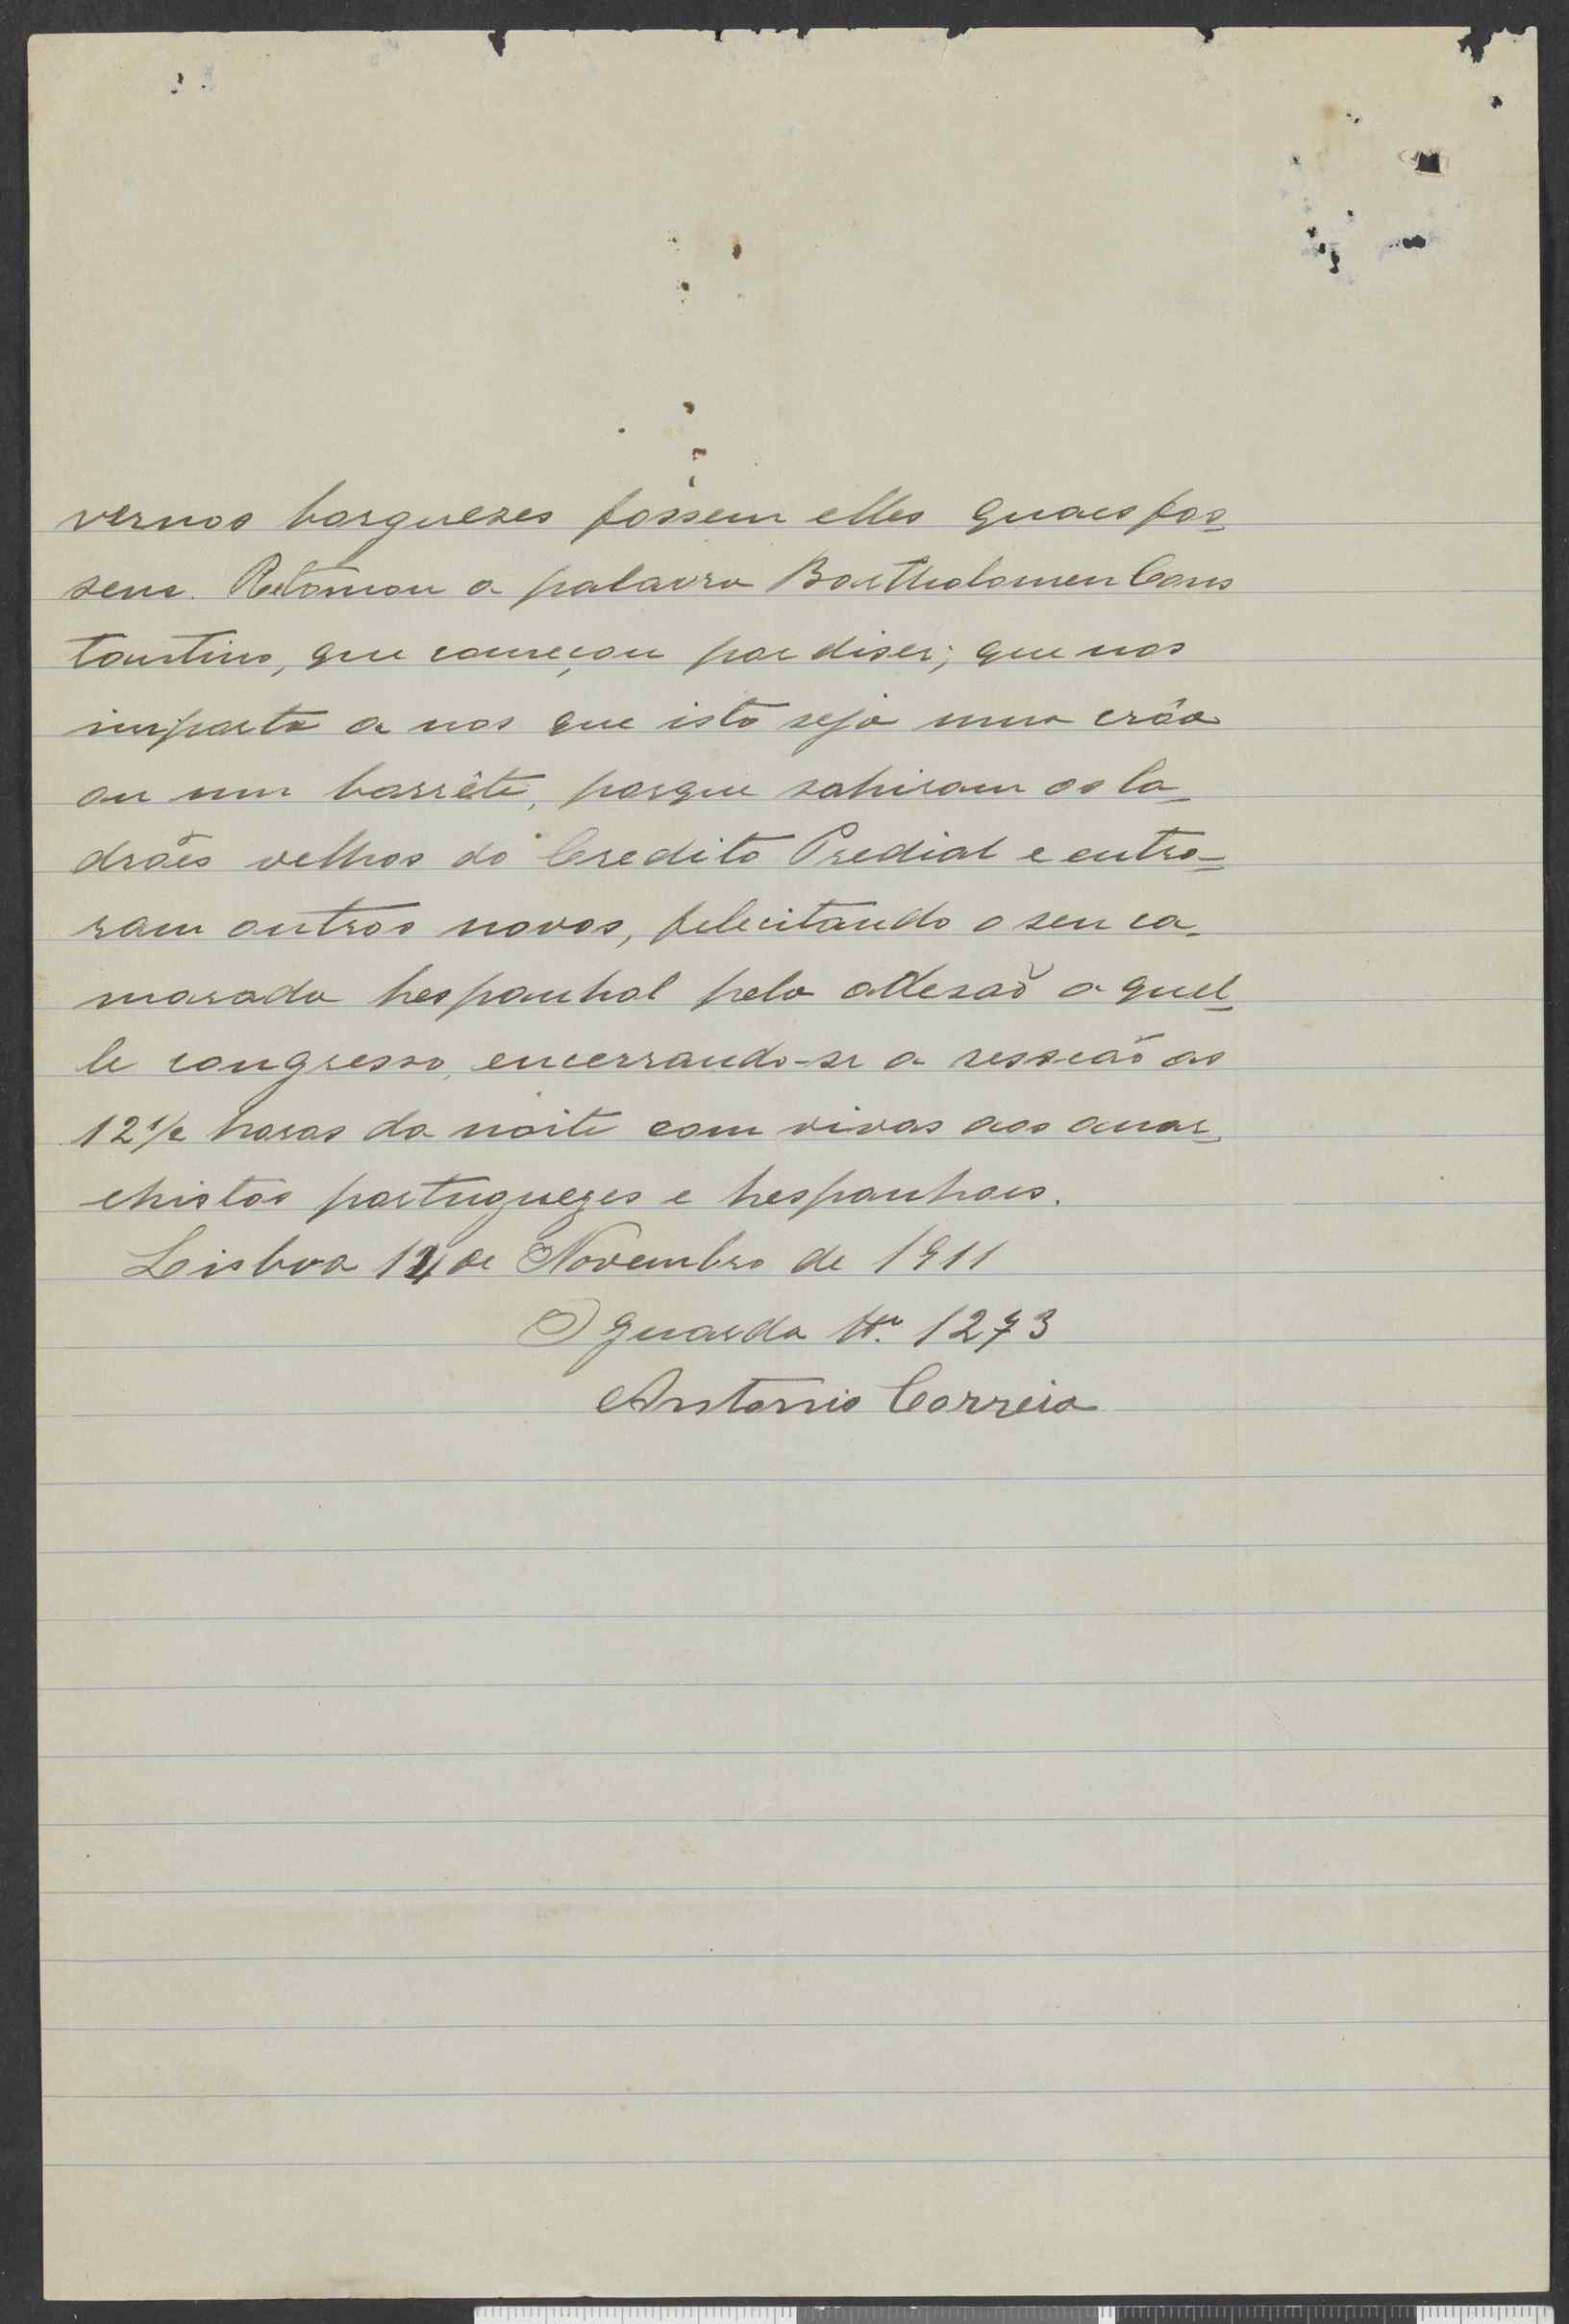 vernos borguezes fossem elles quaes fos-
sem. Retomou a palavra Bartholomeu Cons
tantino, que começou por diser; que nos
importa a nos que isto seja uma crôa
ou um barrête, porque sahiram os la-
drões velhos do Credito Predial e entra-
ram outros novos, felecitando o seu ca-
marada hespanhol pela adesaõ a quel-
le congresso, encerrando-se a sesseaõ as
12 1/2 horas da noite com vivas aos anar-
chistas portuguezes e hespanhoes.
Lisboa 14 de Novembro de 1911
O guarda Nº. 1273
Antonio Correia